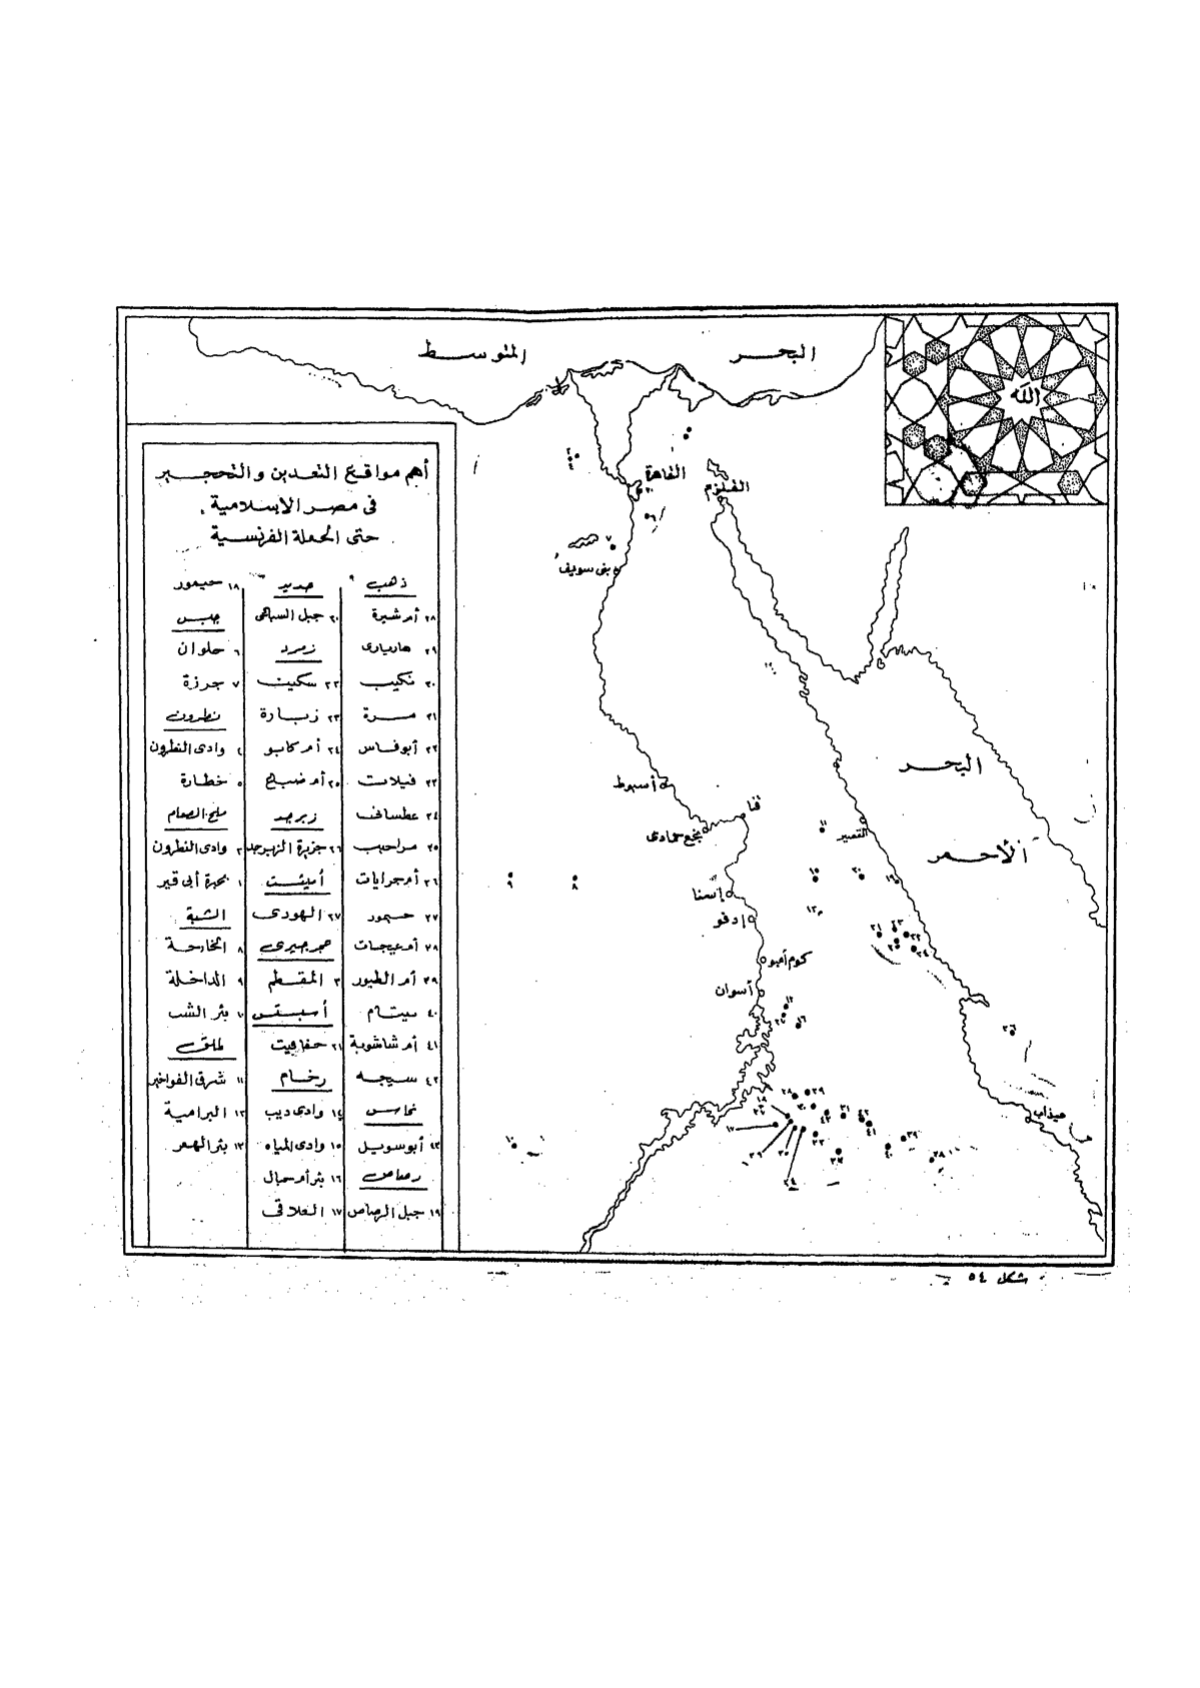 البحر
المتوسط
الله
القاهرة
القلزم
بنى سويف
أسيوط
قنا
نجع حمادى
القصير
إسنا
إدفو
كوم أمبو
أسوان
عيذاب
البحر
الأحمر
أهم مواقع التعدين والتحجير
فى مصر الإسلامية
حتى الحملة الفرنسية
ذهب
٢٨ أم شيرة
٢٩
٣٠ نكيب
٣١ مرة
٣٢ أبوفاس
٣٣ فيلات
٣٤ عطسانى
٣٥ مراحيب
٣٦ أم جرايات
٣٧ حيمور
٣٨ أم عيجات
٣٩ أم الطيور
٤٠ ميتام
٤١ أم شاشوبة
٤٢ سيجه
نحاس
٤٣ أبوسويل
رصاص
١٩ جبل الرصاص
حديد
٢٠ جبل السباعى
زمرد
٢٢ سكيت
٢٣ زبارة
٢٤ أم كابو
٢٥ أم ضبح
زبرجد
٢٦ جزيرة الزبرجد
أميثست
٢٧ الهودى
حجر جيرى
٣ المقطم
أسبستس
٢١ حفافيت
رخام
١٤ وادى ديب
١٥ وادى المياه
١٦ بئر أم حبال
١٧ العلاقى
١٨ حيمور
جبس
٦ حلوان
٧ جرزة
نطرون
٤ وادى النطرون
٥ خطارة
ملح الطعام
٢ وادى النطرون
١ بحيرة أبى قير
الشبة
٨ الخارجة
٩ الداخلة
١٠ بئر الشب
طلق
١١ شرق الفواخير
١٢ البرامية
١٣
شكل ٥٤